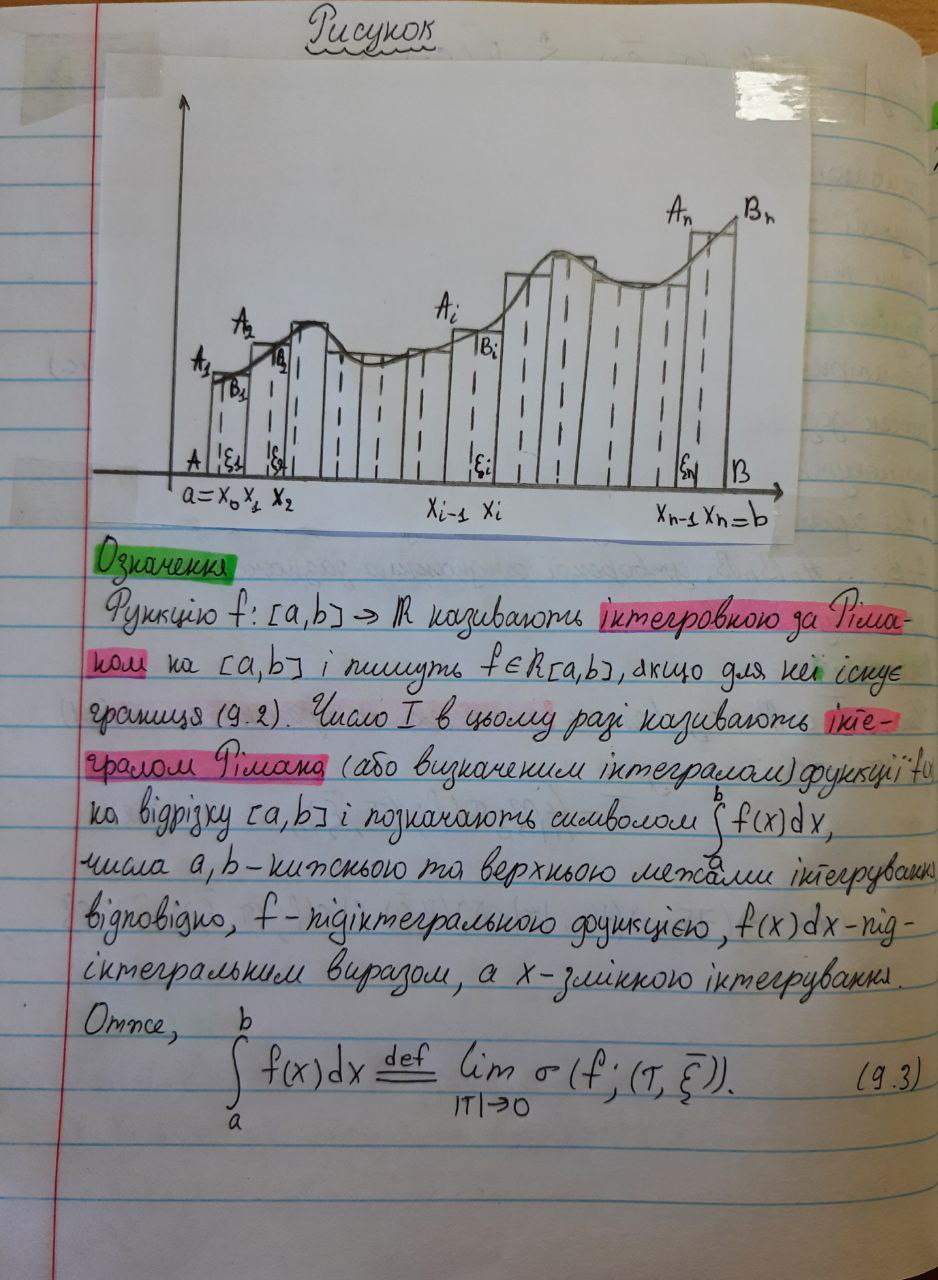 Рисунок
A₁ A₂ Aᵢ Aₙ Bₙ
B₁ B₂ Bᵢ
A ξ₁ ξ₂ ξᵢ ξₙ B
a=x₀ x₁ x₂ xᵢ₋₁ xᵢ xₙ₋₁ xₙ=b
Означення
Функцію f: [a,b] → ℝ називають інтегровною за Ріма-
ном на [a,b] і пишуть f∈R[a,b], якщо для неї існує
границя (9.2). Число I в цьому разі називають інте-
гралом Рімана (або визначеним інтегралом) функції f(x)
на відрізку [a,b] і позначають символом ∫ₐᵇ f(x)dx,
числа a,b-нижньою та верхньою межами інтегрування
відповідно, f-підінтегральною функцією, f(x)dx-під-
інтегральним виразом, а x-змінною інтегрування.
Отже,
∫ₐᵇ f(x)dx def= lim |T|→0 σ(f; (T, ξ̄)). (9.3)